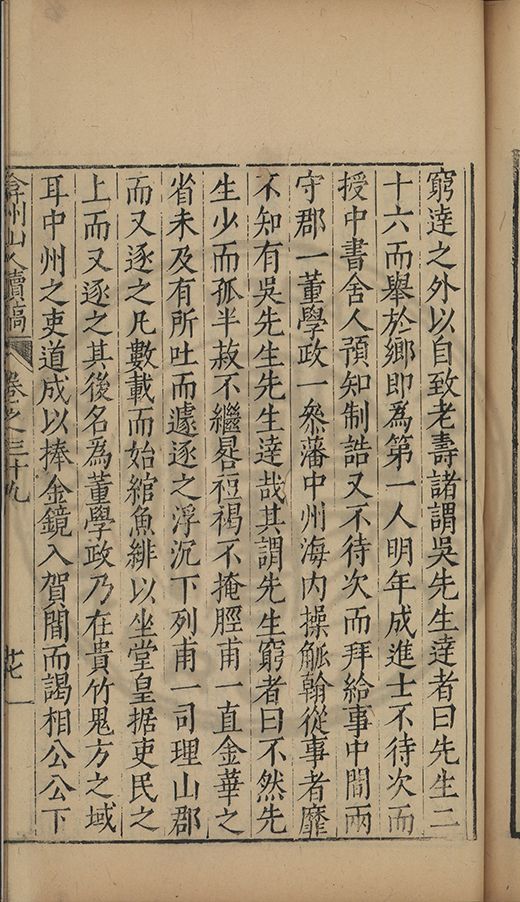 窮達之外以自致老壽諸謂吳先生達者曰先生二
十六而舉於鄉即為第一人明年成進士不待次而
授中書舍人預知制誥又不待次而拜給事中間兩
守郡一董學政一叅藩中州海內操觚翰從事者靡
不知有吳先生先生達哉其謂先生窮者曰不然先
生少而孤半菽不繼晷裋褐不掩脛甫一直金華之
省未及有所吐而遽逐之浮沉下列甫一司理山郡
而又逐之凡數載而始綰魚緋以坐堂皇據吏民之
上而又逐之其後名為董學政乃在貴竹鬼方之域
耳中州之吏道成以捧金鏡入賀間而謁相公公下
弇州山人續稿 卷之三十九 廿七